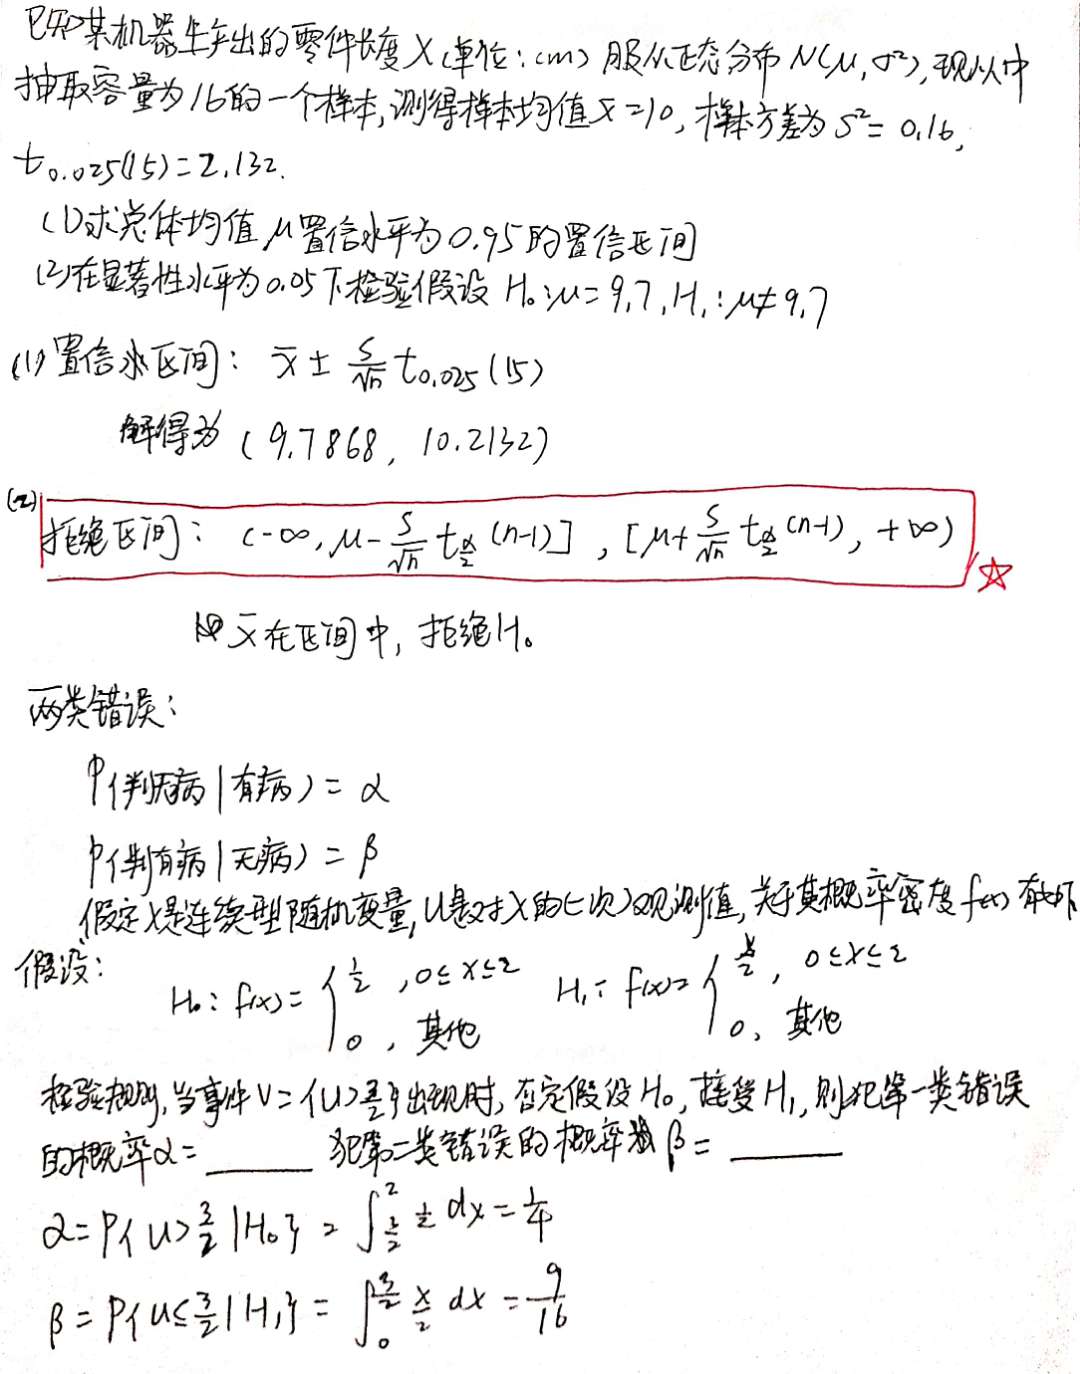 已知某机器生产出的零件长度X(单位:cm)服从正态分布N(μ,σ²),现从中
抽取容量为16的一个样本,测得样本均值x̄=10,样本方差为S²=0.16,
t₀.₀₂₅(15)=2.132.
(1)求总体均值μ置信水平为0.95的置信区间
(2)在显著性水平为0.05下检验假设H₀:μ=9.7,H₁:μ≠9.7
(1)置信水区间: x̄ ± S/√n t₀.₀₂₅(15)
解得为(9.7868, 10.2132)
(2)拒绝区间: (-∞, μ - S/√n t_{α/2}(n-1)], [μ + S/√n t_{α/2}(n-1), +∞)
x̄在区间中,拒绝H₀
两类错误:
P{判无病|有病}=α
P{判有病|无病}=β
假定X是连续型随机变量,U是对X的(一次)观测值,关于其概率密度f(x)有如下
假设: H₀: f(x)={1/2, 0≤x≤2 0, 其他 H₁: f(x)={x/2, 0≤x≤2 0, 其他
检验规则,当事件V={U>3/2}出现时,否定假设H₀,接受H₁,则犯第一类错误
的概率α=______ 犯第二类错误的概率β=______
α=P{U>3/2|H₀}=∫_{3/2}^{2} 1/2 dx=1/4
β=P{U≤3/2|H₁}=∫_{0}^{3/2} x/2 dx=9/16